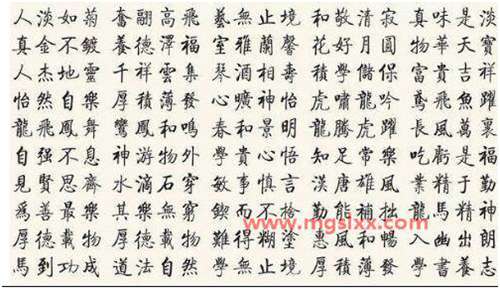 人淡如菊 奮翮高飛 藝無止境 和敬清寂 真味是淡
真金不鍍 養德澤福 室雅蘭馨 花好月圓 物華天寶
人杰地靈 千祥雲集 琴酒相壽 學儲保 富貴吉祥
怡然自樂 厚積薄發 心曠神怡 虎嘯龍吟 鳶飛魚躍
龍飛鳳舞 鸞鳳和鳴 春和景明 龍騰虎躍 長風萬裏
自强不息 神游物外 學貴心悟 知足常樂 吃虧是福
見賢思齊 水滴石穿 敏事慎言 漢唐雄風 業精于勤
爲善最樂 其樂無窮 鍥而不捨 勤能補拙 龍馬精神
www.mgslxx.com
厚德載物 難得糊塗 惠風和暢 入幽出朗
馬到功成 道德法自然 學無止境 厚積薄發 學書養志